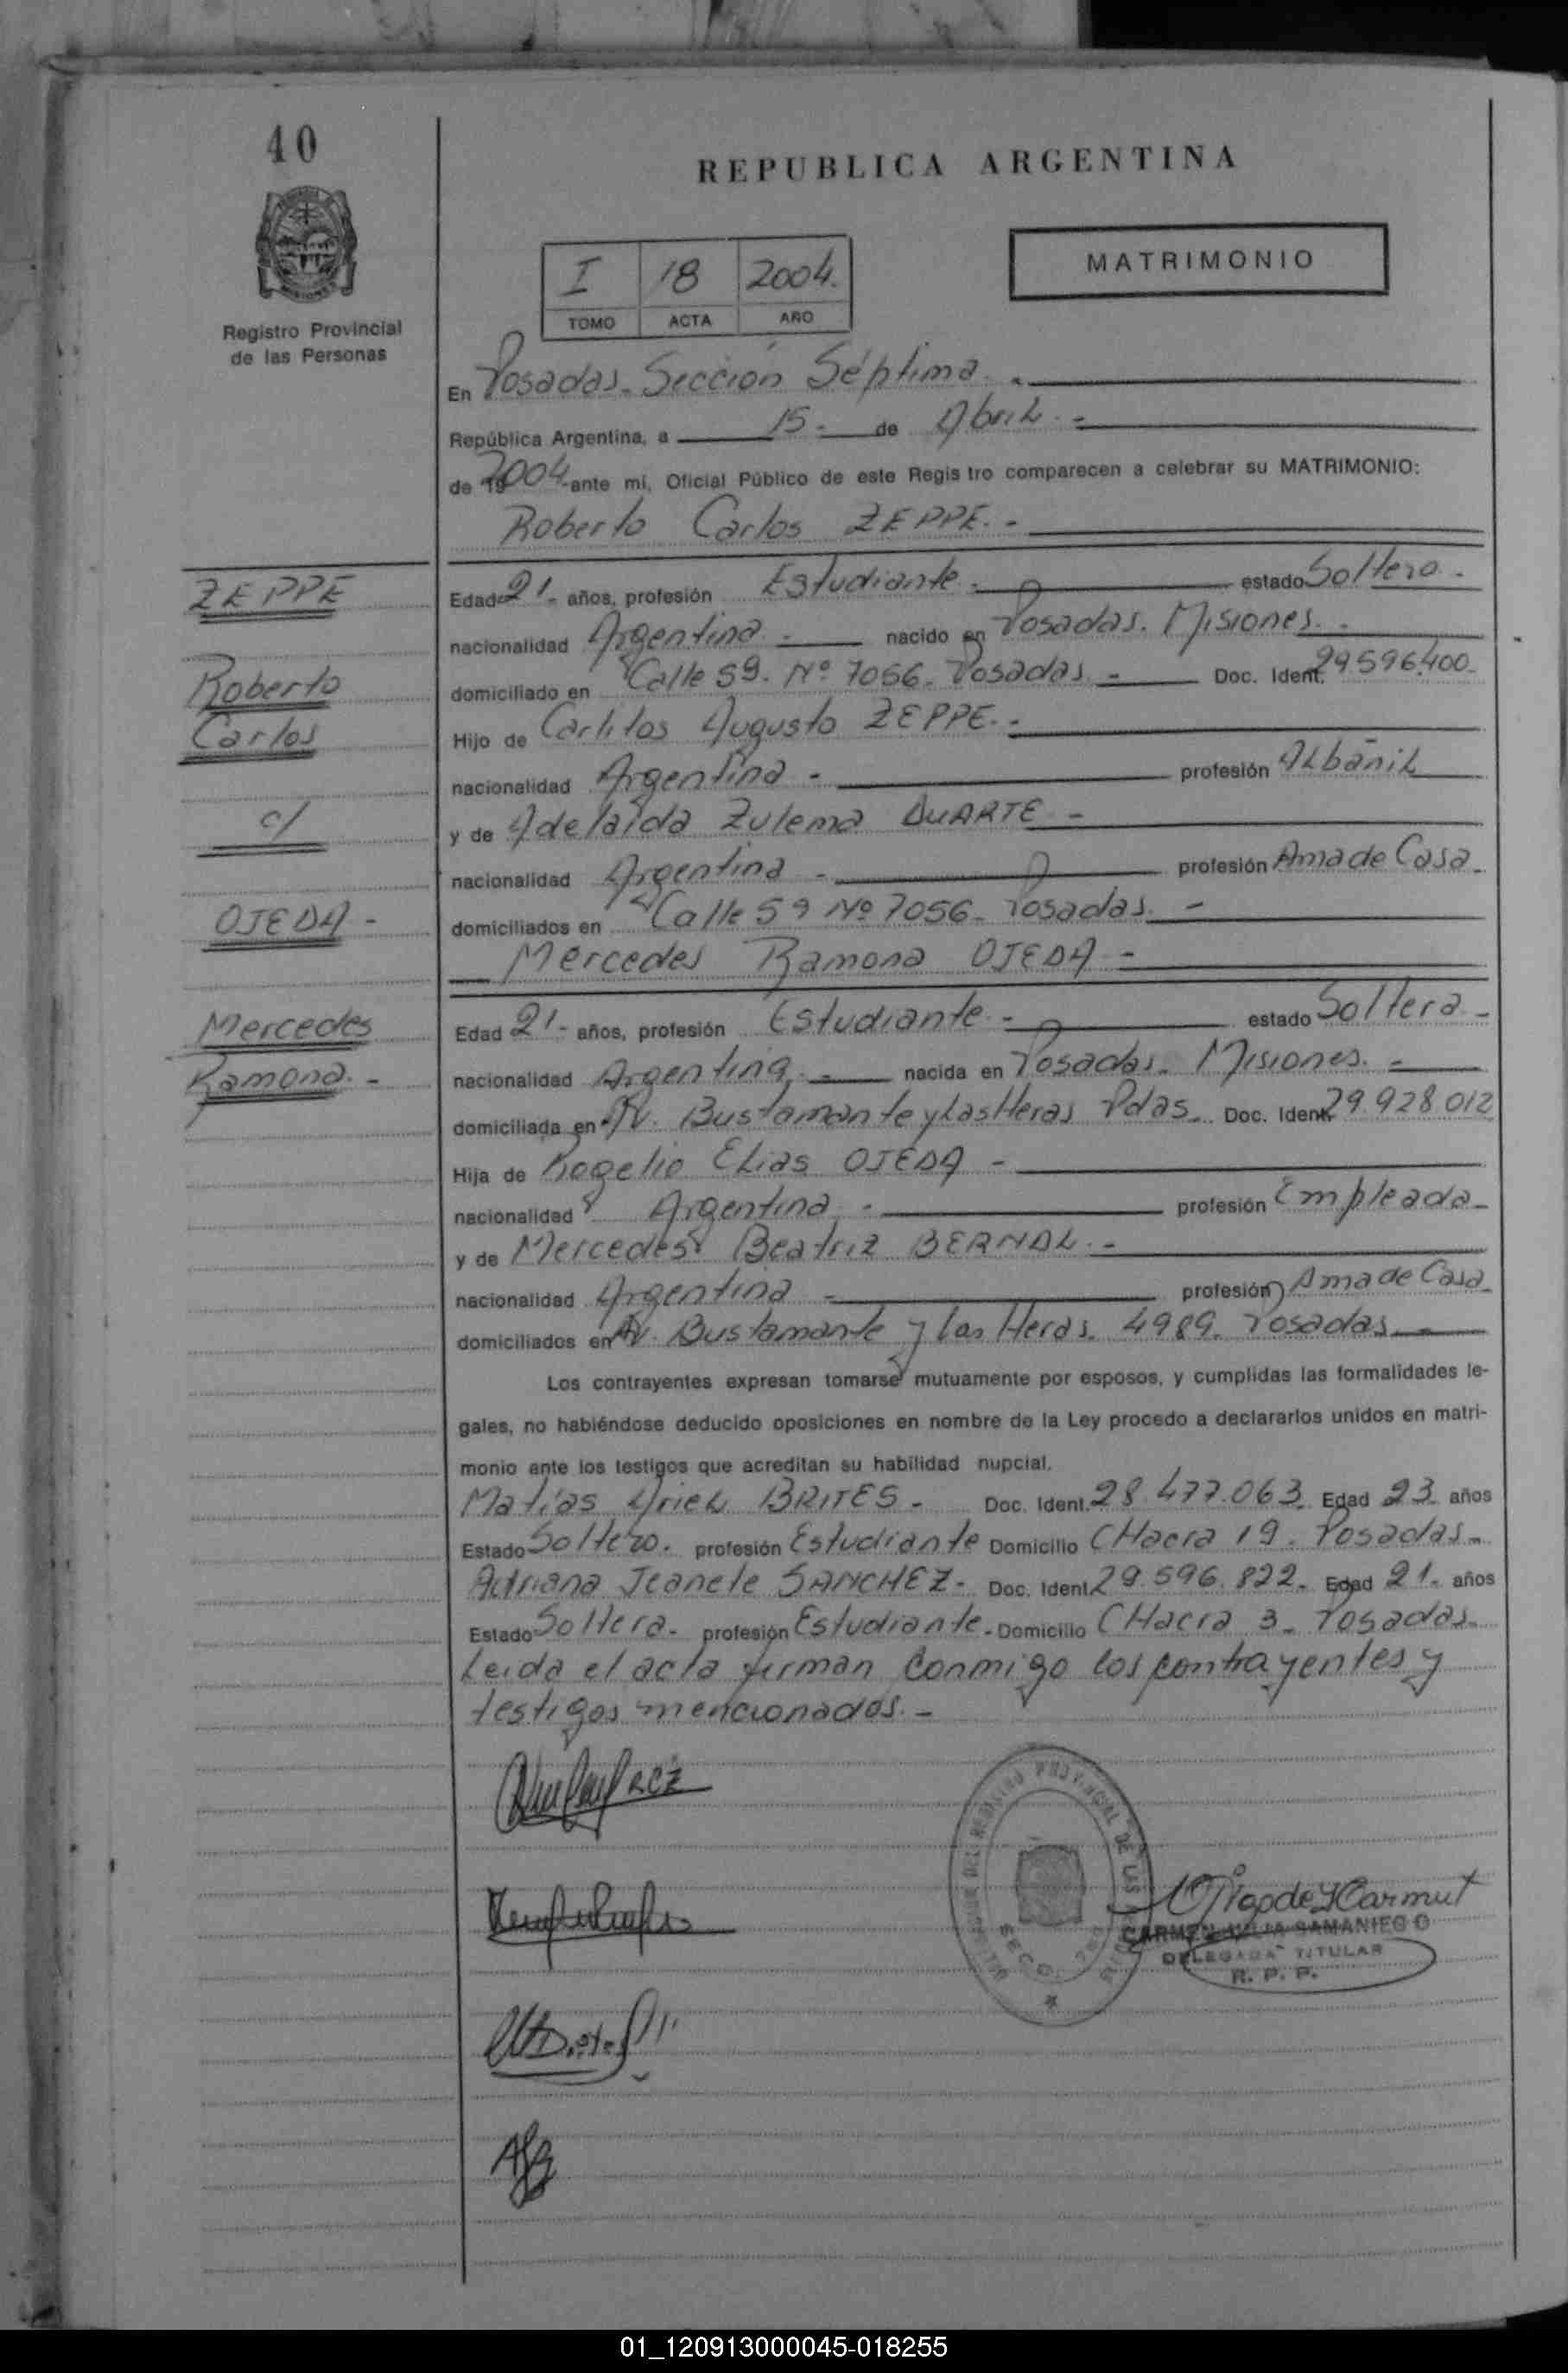 40
REPUBLICA ARGENTINA
MATRIMONIO
I 18 2004.
TOMO ACTA AÑO
Registro Provincial
de las Personas
En Posadas. Sección Séptima. -
República Argentina, a 15. de Abril. -
de 2004 ante mí, Oficial Público de este Regis tro comparecen a celebrar su MATRIMONIO:
Roberto Carlos ZEPPE. -
ZEPPE
Roberto
Carlos
c/
OJEDA -
Mercedes
Ramona. -
Edad 21 - años, profesión Estudiante - estado Soltero -
nacionalidad Argentina - nacido en Posadas. Misiones. -
domiciliado en Calle 59. Nº 7056. Posadas. - Doc. Ident. 29.596.400-
Hijo de Carlitos Augusto ZEPPE. -
nacionalidad Argentina - profesión ALbañiL
y de Adelaida Zulema DUARTE -
nacionalidad Argentina - profesión Ama de Casa -
domiciliados en Calle 59 Nº 7056 - Posadas. -
Mercedes Ramona OJEDA -
Edad 21 - años, profesión Estudiante - estado Soltera -
nacionalidad Argentina - nacida en Posadas. Misiones. -
domiciliada en Av. Bustamante y Las Heras Pdas. Doc. Ident. 29.928.012
Hija de Rogelio Elias OJEDA -
nacionalidad Argentina - profesión Empleada -
y de Mercedes Beatriz BERNAL. -
nacionalidad Argentina - profesión Ama de Casa
domiciliados en Av. Bustamante y Las Heras. 4989. Posadas -
Los contrayentes expresan tomarse mutuamente por esposos, y cumplidas las formalidades le-
gales, no habiéndose deducido oposiciones en nombre de la Ley procedo a declararlos unidos en matri-
monio ante los testigos que acreditan su habilidad nupcial.
Matías Ariel BRITES - Doc. Ident. 28.477.063. Edad 23. años
Estado Soltero. profesión Estudiante Domicilio CHacra 19. Posadas -
Adriana Jeanete SANCHEZ - Doc. Ident. 29.596.822. Edad 21. años
Estado Soltera. profesión Estudiante. Domicilio CHacra 3. Posadas.
Leida el acta firman conmigo los contrayentes y
testigos mencionados. -
CARMEN JULIA SAMANIEGO
DELEGADA TITULAR
R. P. P.
01_120913000045-018255